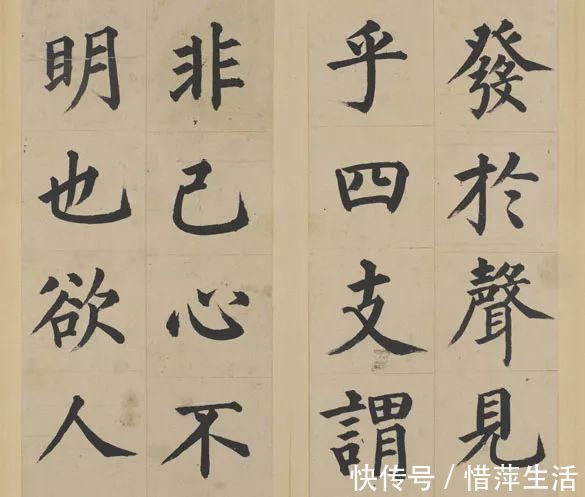 發於聲見
乎四支謂
非己心不
明也欲人
快传号/惜萍生活